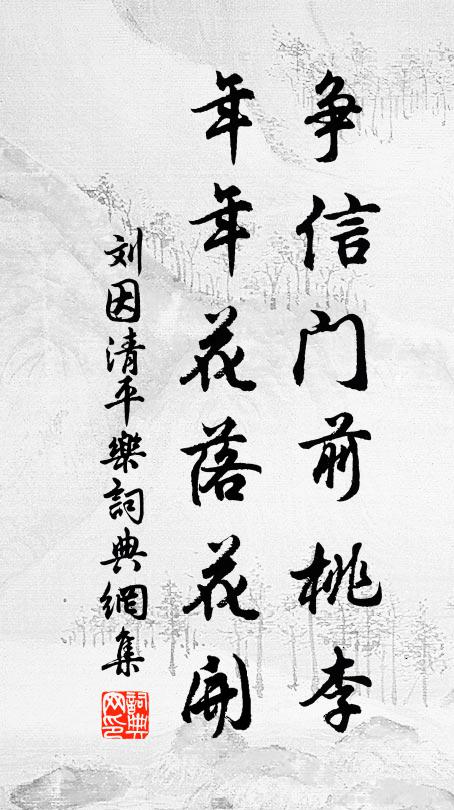 争信门前桃李
年年花落花開
刘因清平樂詞典網集
詞典网印